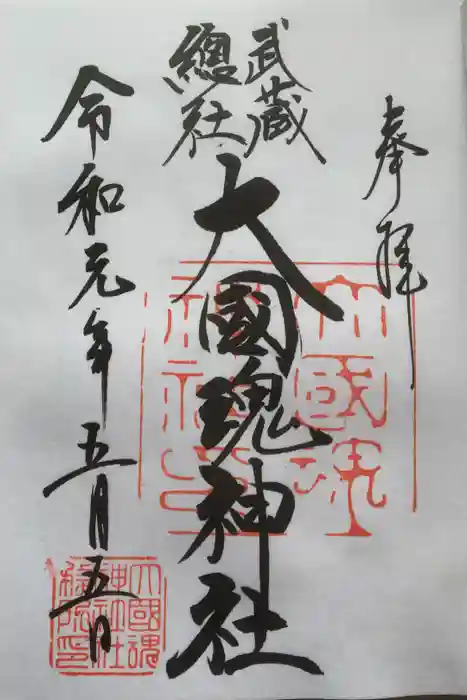 奉拝
武蔵
總社
大國魂神社
令和元年五月五日
大國魂
神社之印
大國魂
神社社
務所印